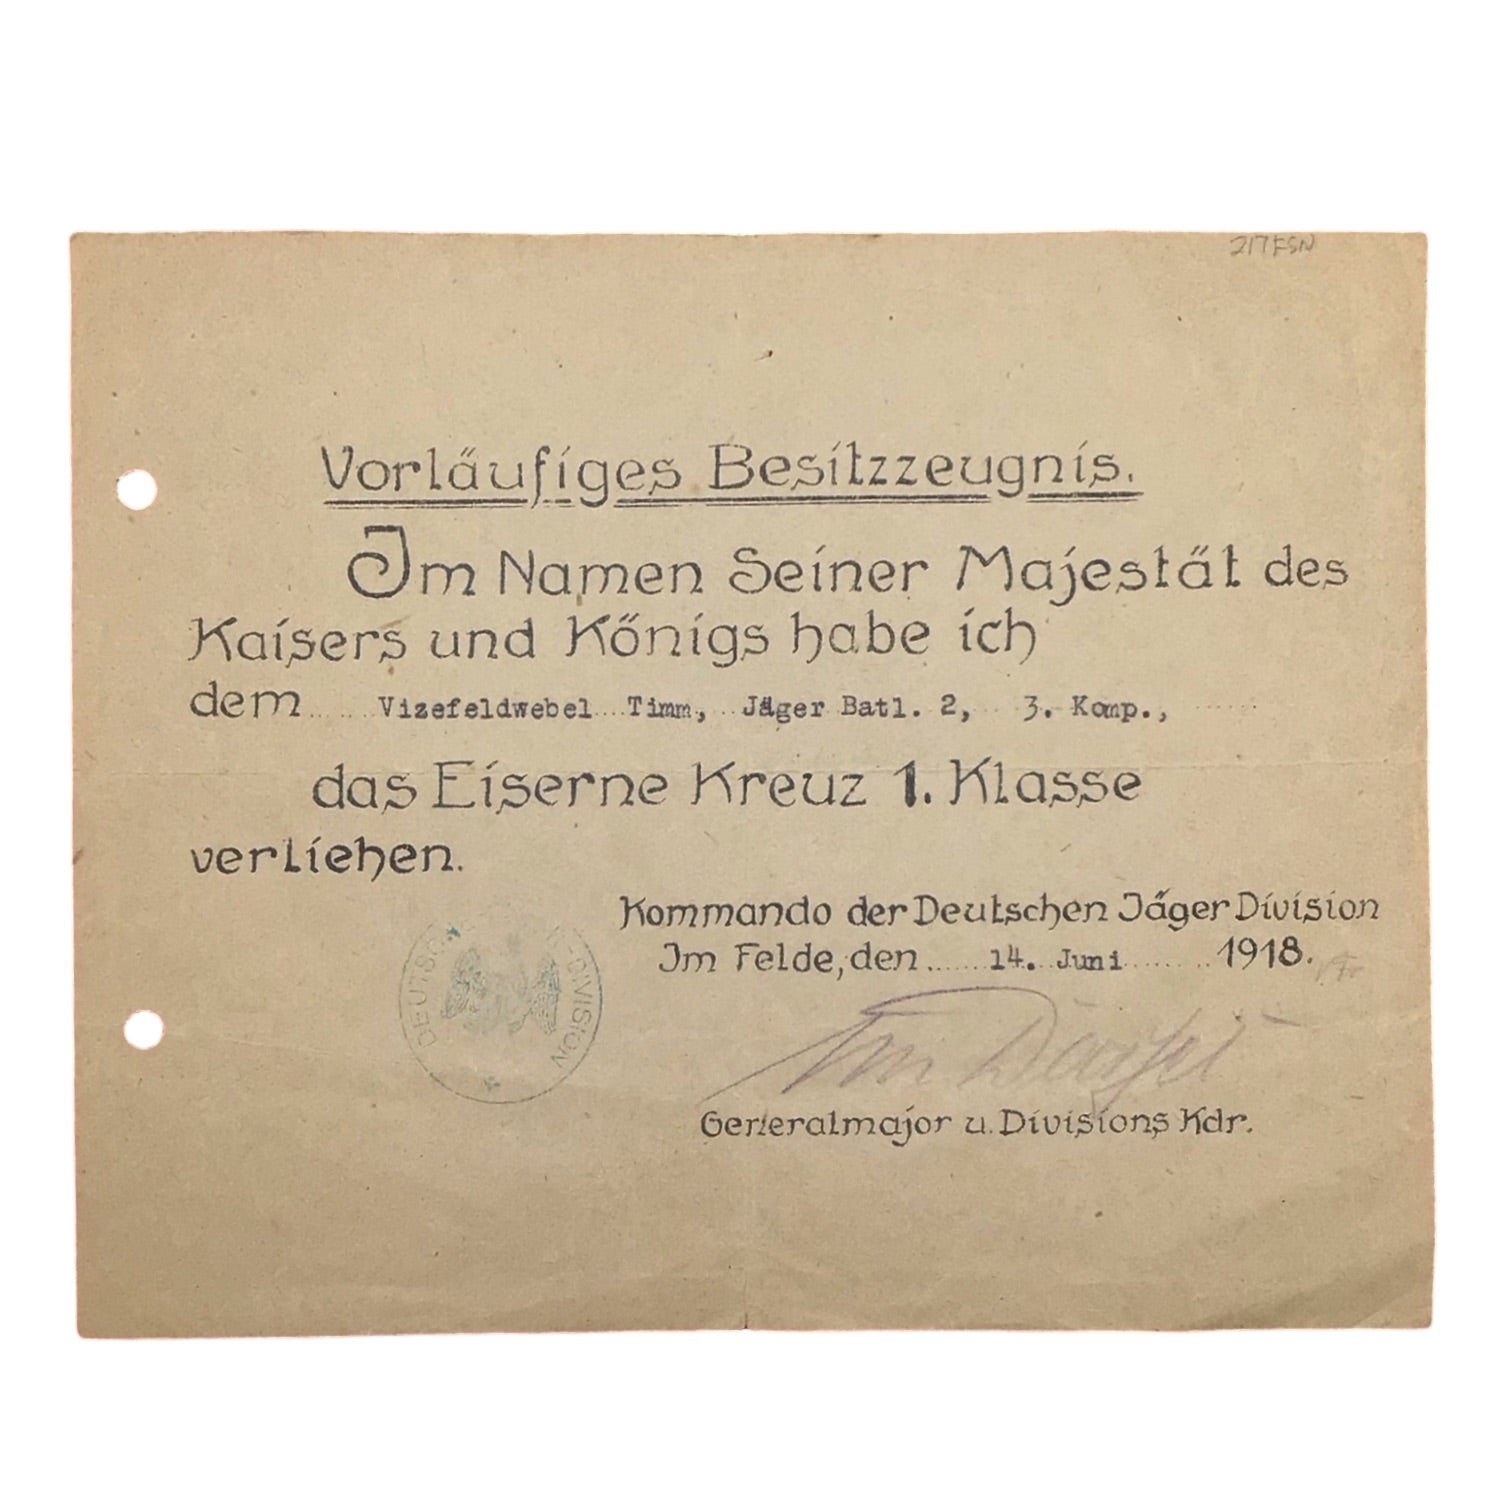 217ESN
Vorläufiges Besitzzeugnis.
Im Namen Seiner Majestät des
Kaisers und Königs habe ich
dem Vizefeldwebel Timm, Jäger Batl. 2, 3. Komp.,
das Eiserne Kreuz 1. Klasse
verliehen.
Kommando der Deutschen Jäger Division
Im Felde, den 14. Juni 1918.
DIVISION
Generalmajor u. Divisions Kdr.